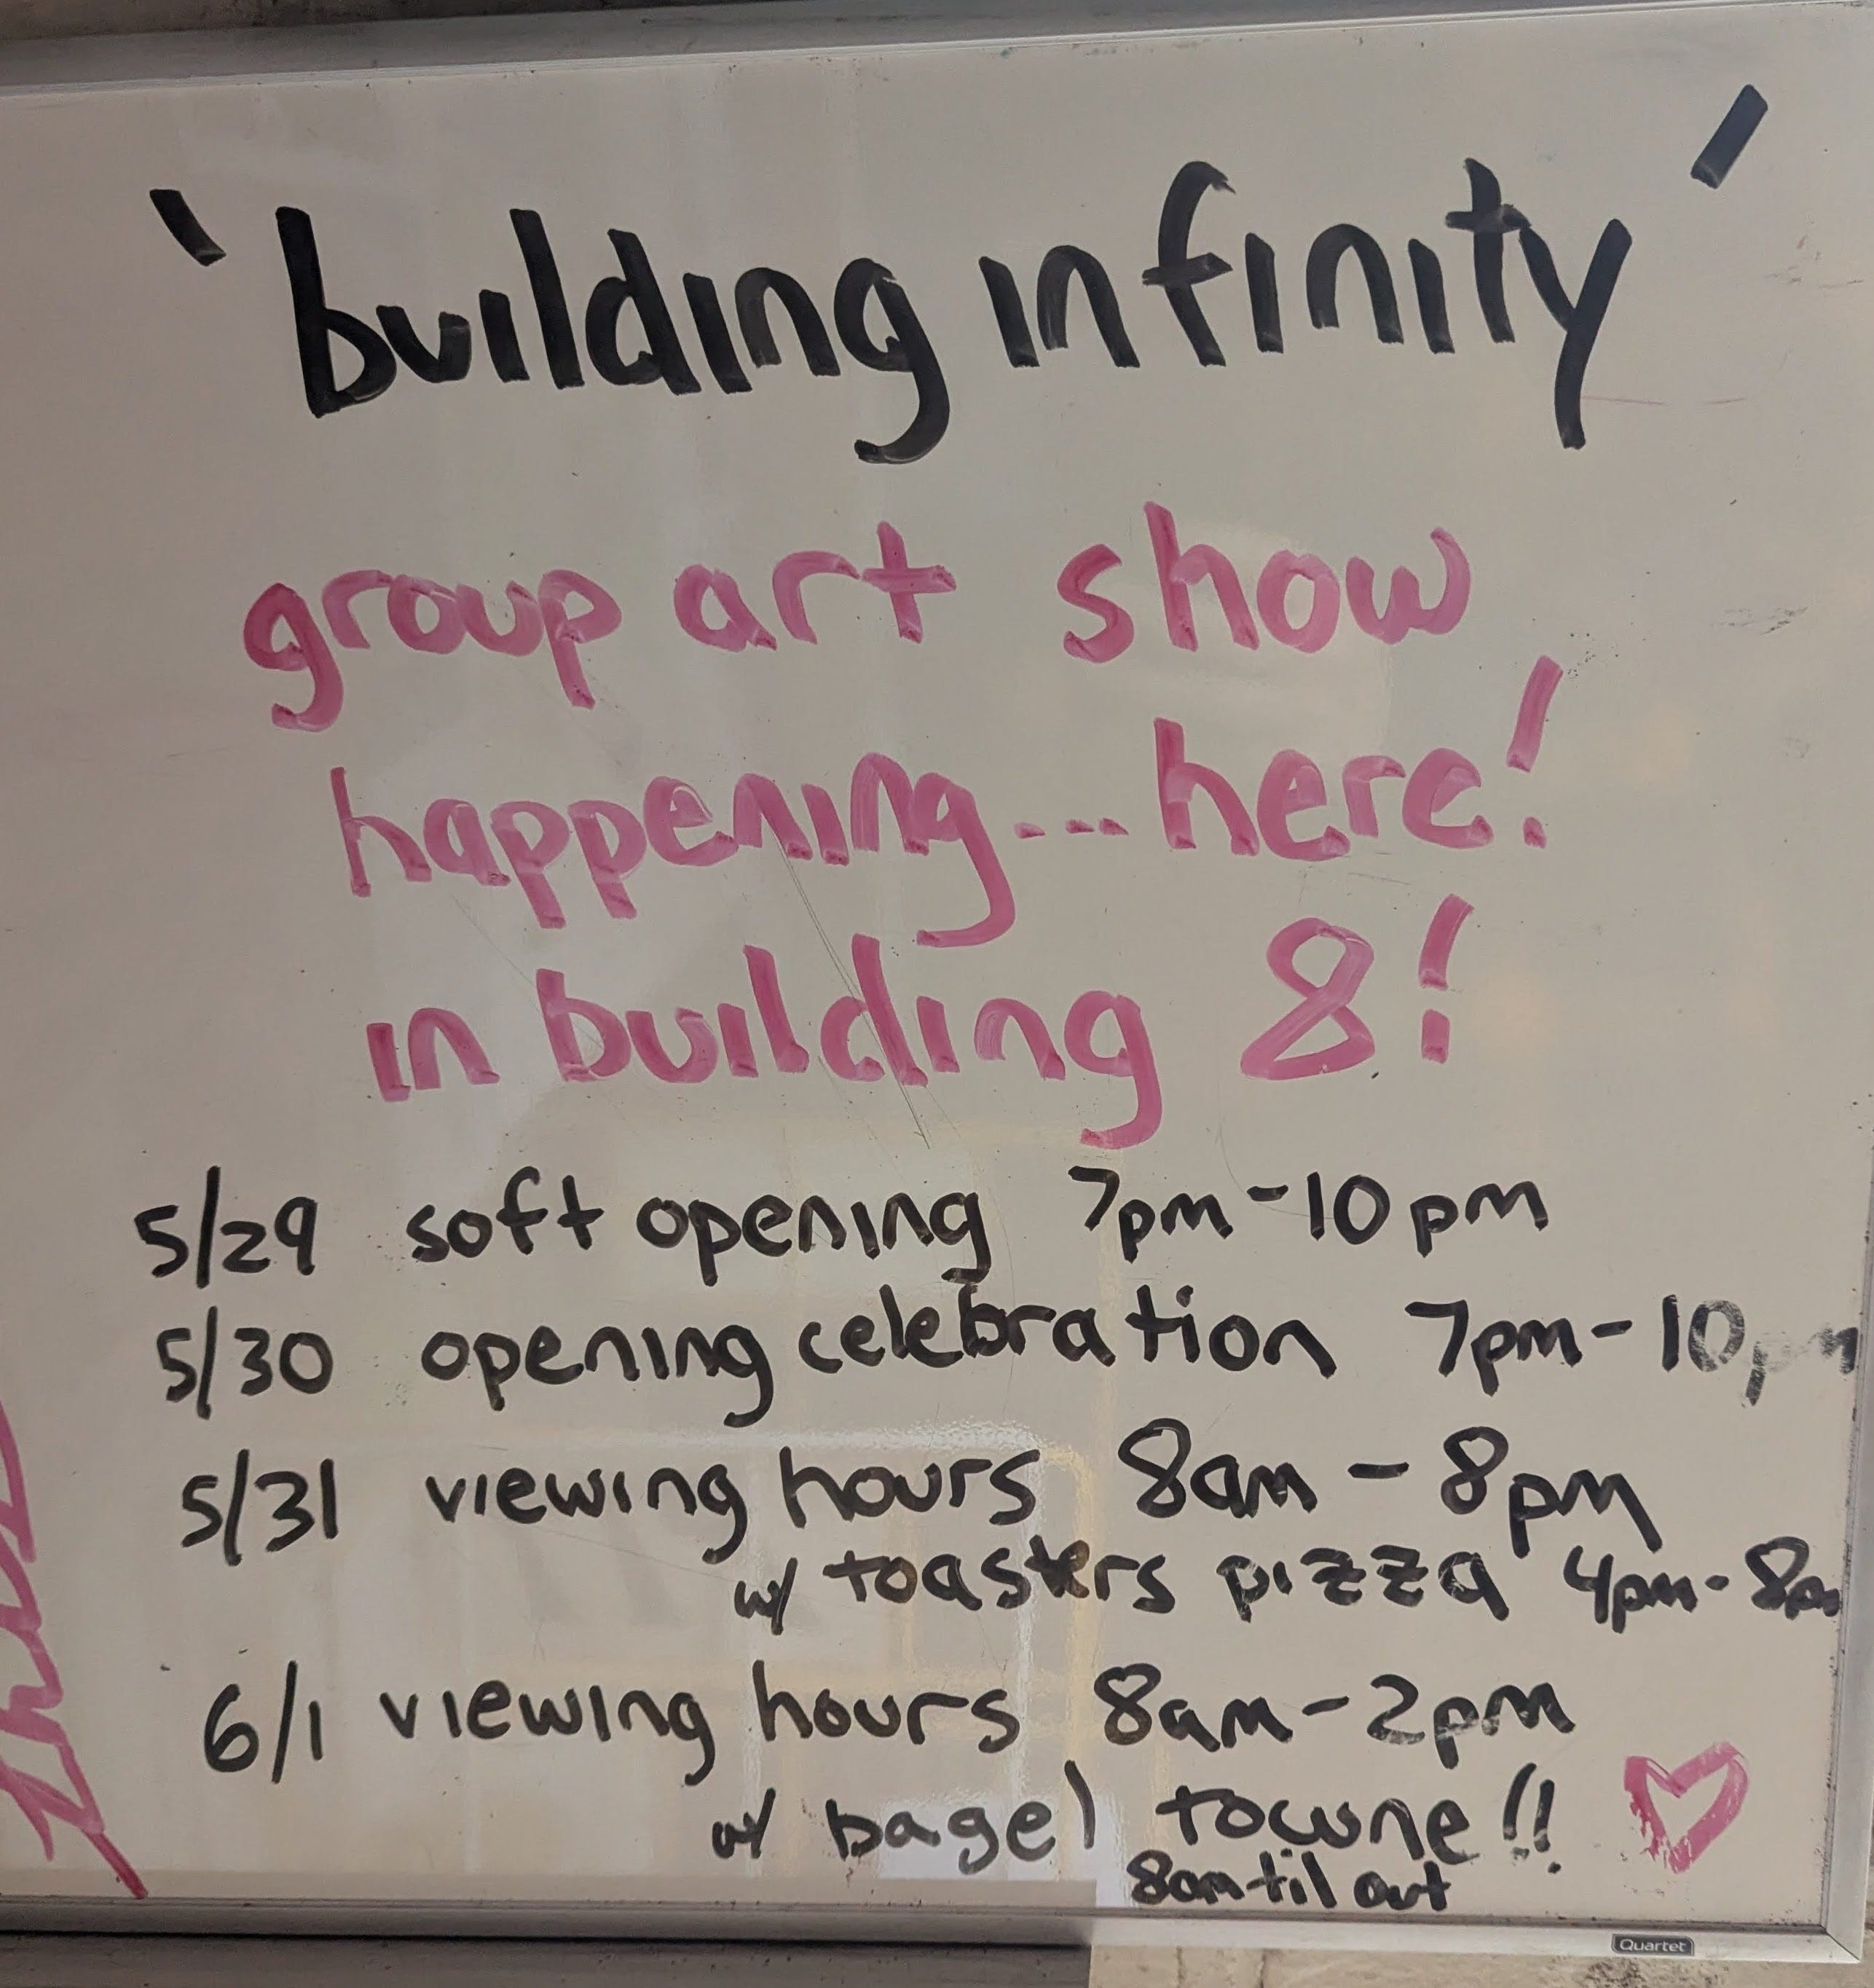 'building infinity'
group art show
happening...here!
in building 8!
5/29 soft opening 7pm-10pm
5/30 opening celebration 7pm-10pm
5/31 viewing hours 8am-8pm
w/ toasters pizza 4pm-8pm
6/1 viewing hours 8am-2pm
w/ bagel towne!!
8am til out
Quartet